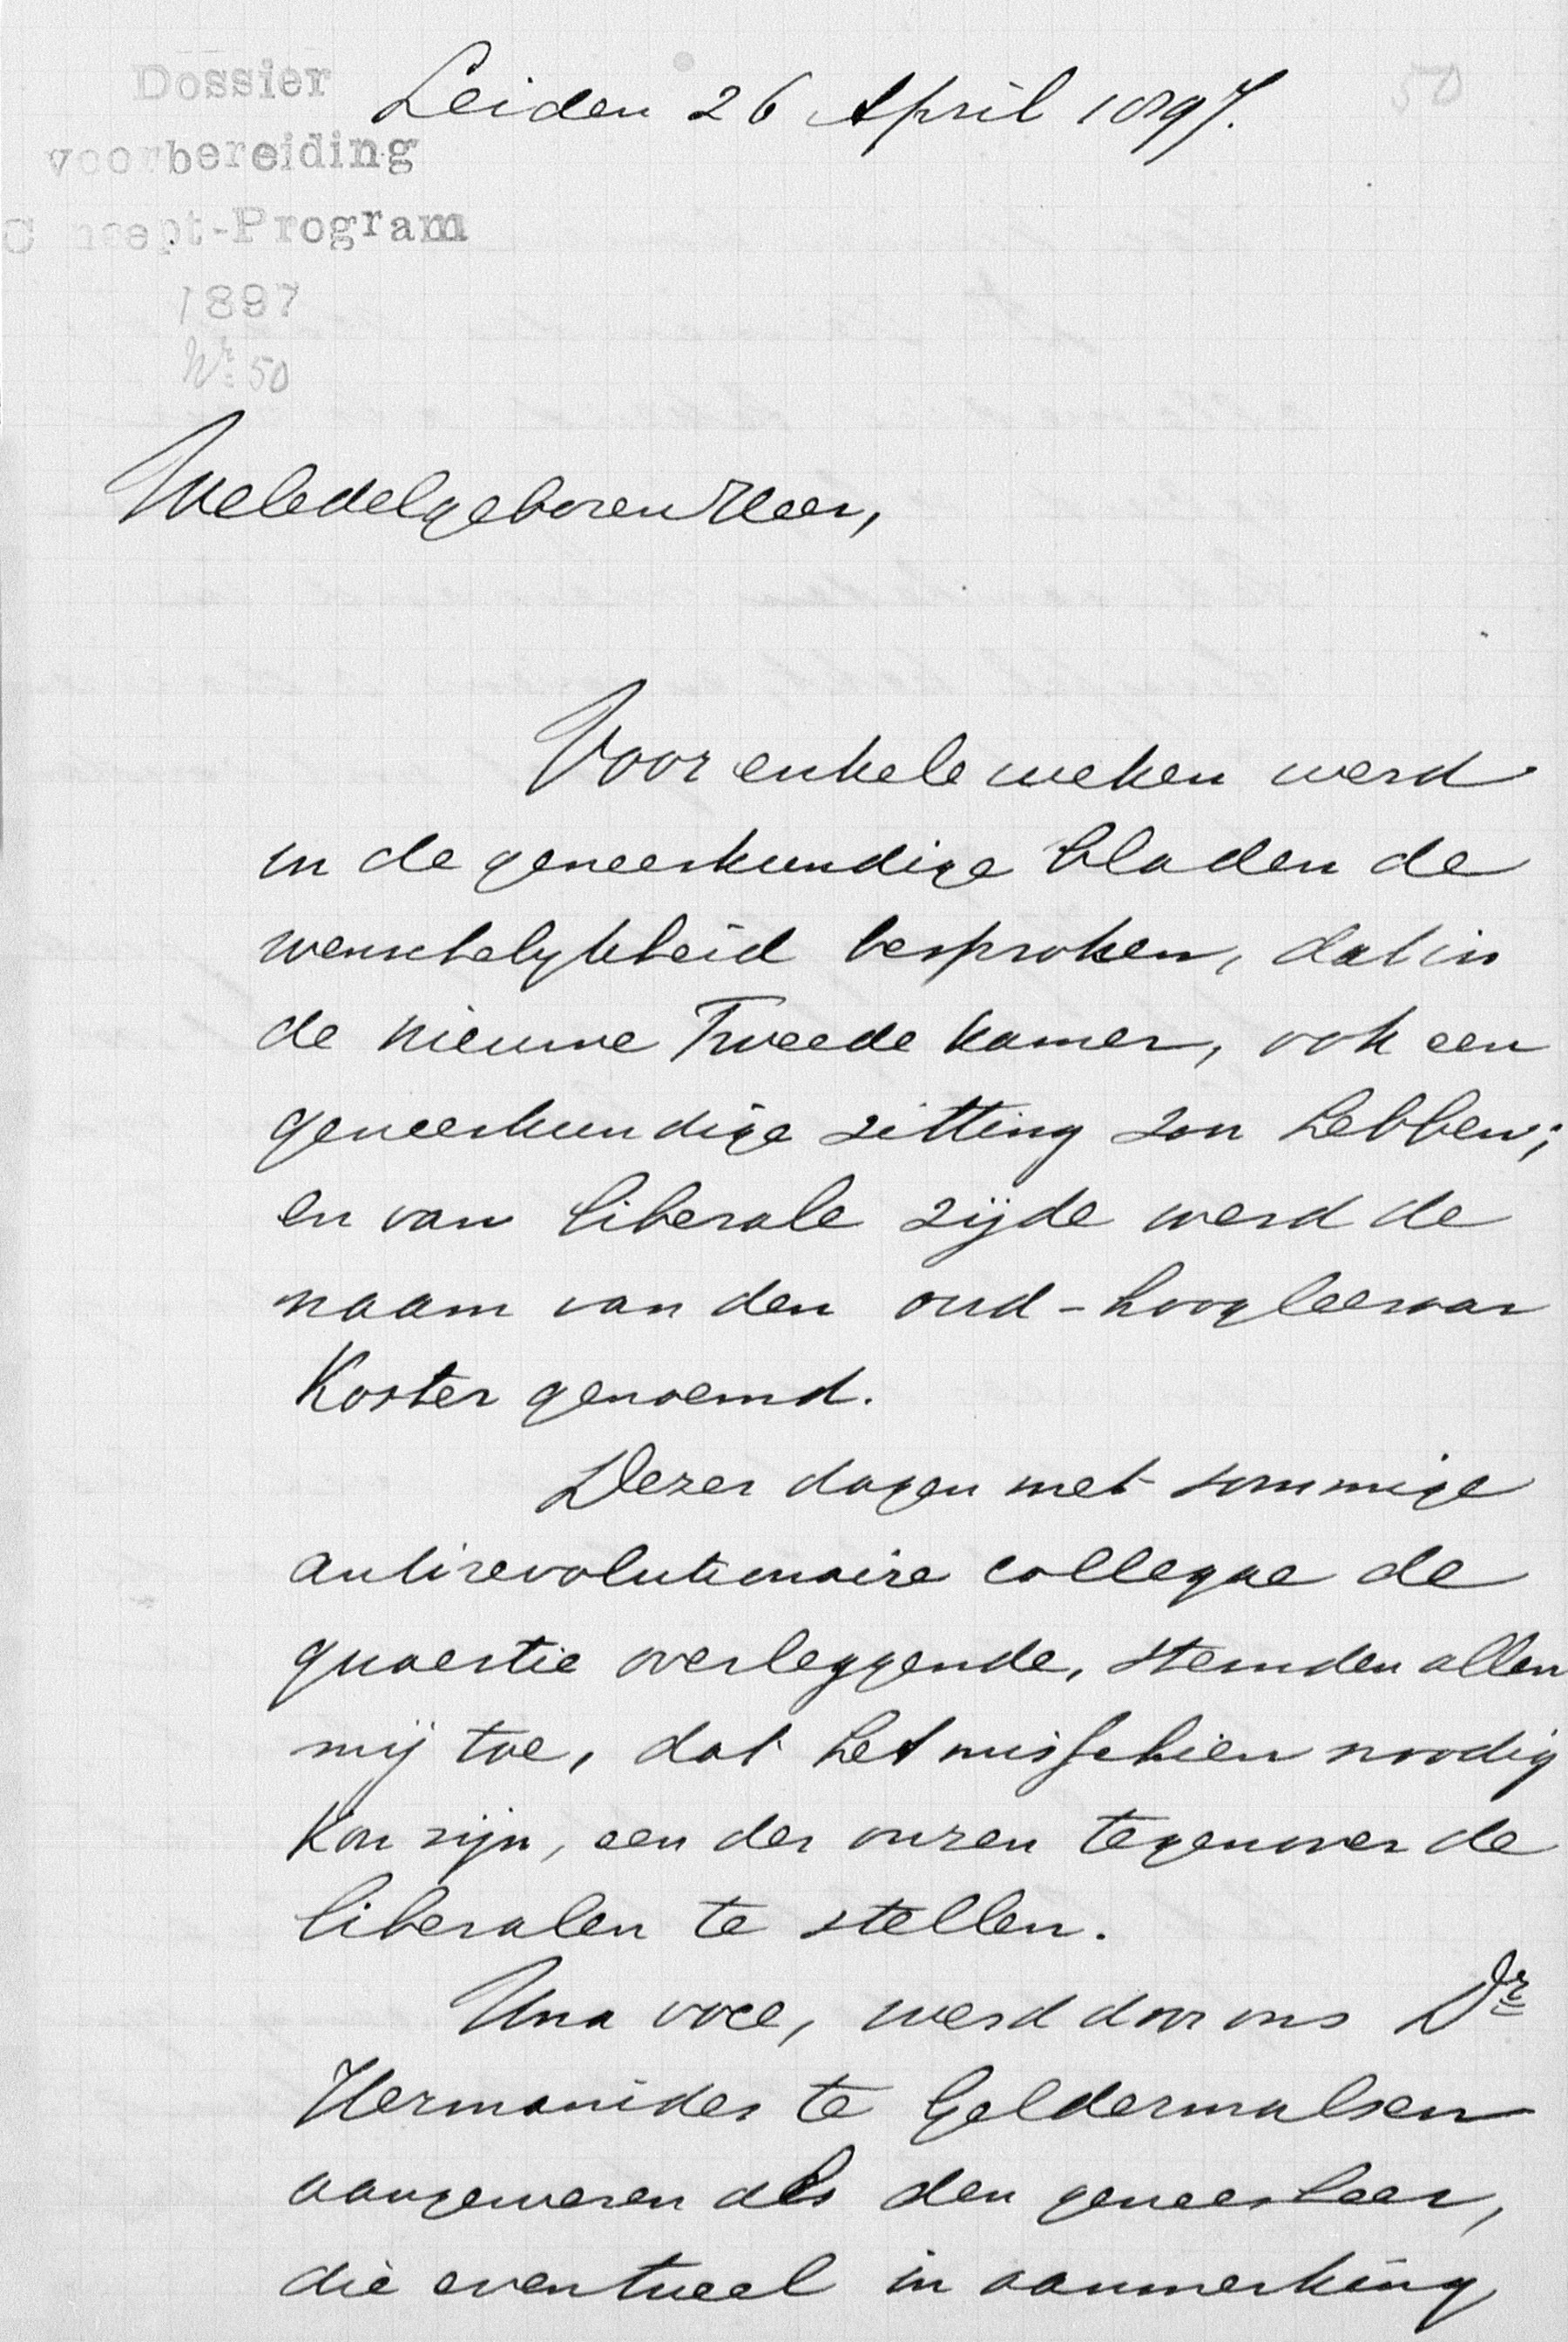 Dossier
voorbereiding
Concept-Program
1897
Nr. 50
50
Leiden 26 April 1897.
Weledelgeboren Heer,
Voor enkele weken werd
in de geneeskundige bladen de
wenschelykheid besproken, dat in
de nieuwe Tweede Kamer, ook een
geneeskundige zitting zou hebben;
en van liberale zijde werd de
naam van den oud-hoogleeraar
Koster genoemd.
Dezer dagen met sommige
antirevolutionaire collegae de
quaestie overleggende, stemden allen
mij toe, dat het misschien noodig
kon zijn, een der onzen tegenover de
liberalen te stellen.
Una voce, werd door ons Dr
Hermanides te Geldermalsen
aangewezen als den geneesheer,
die eventueel in aanmerking